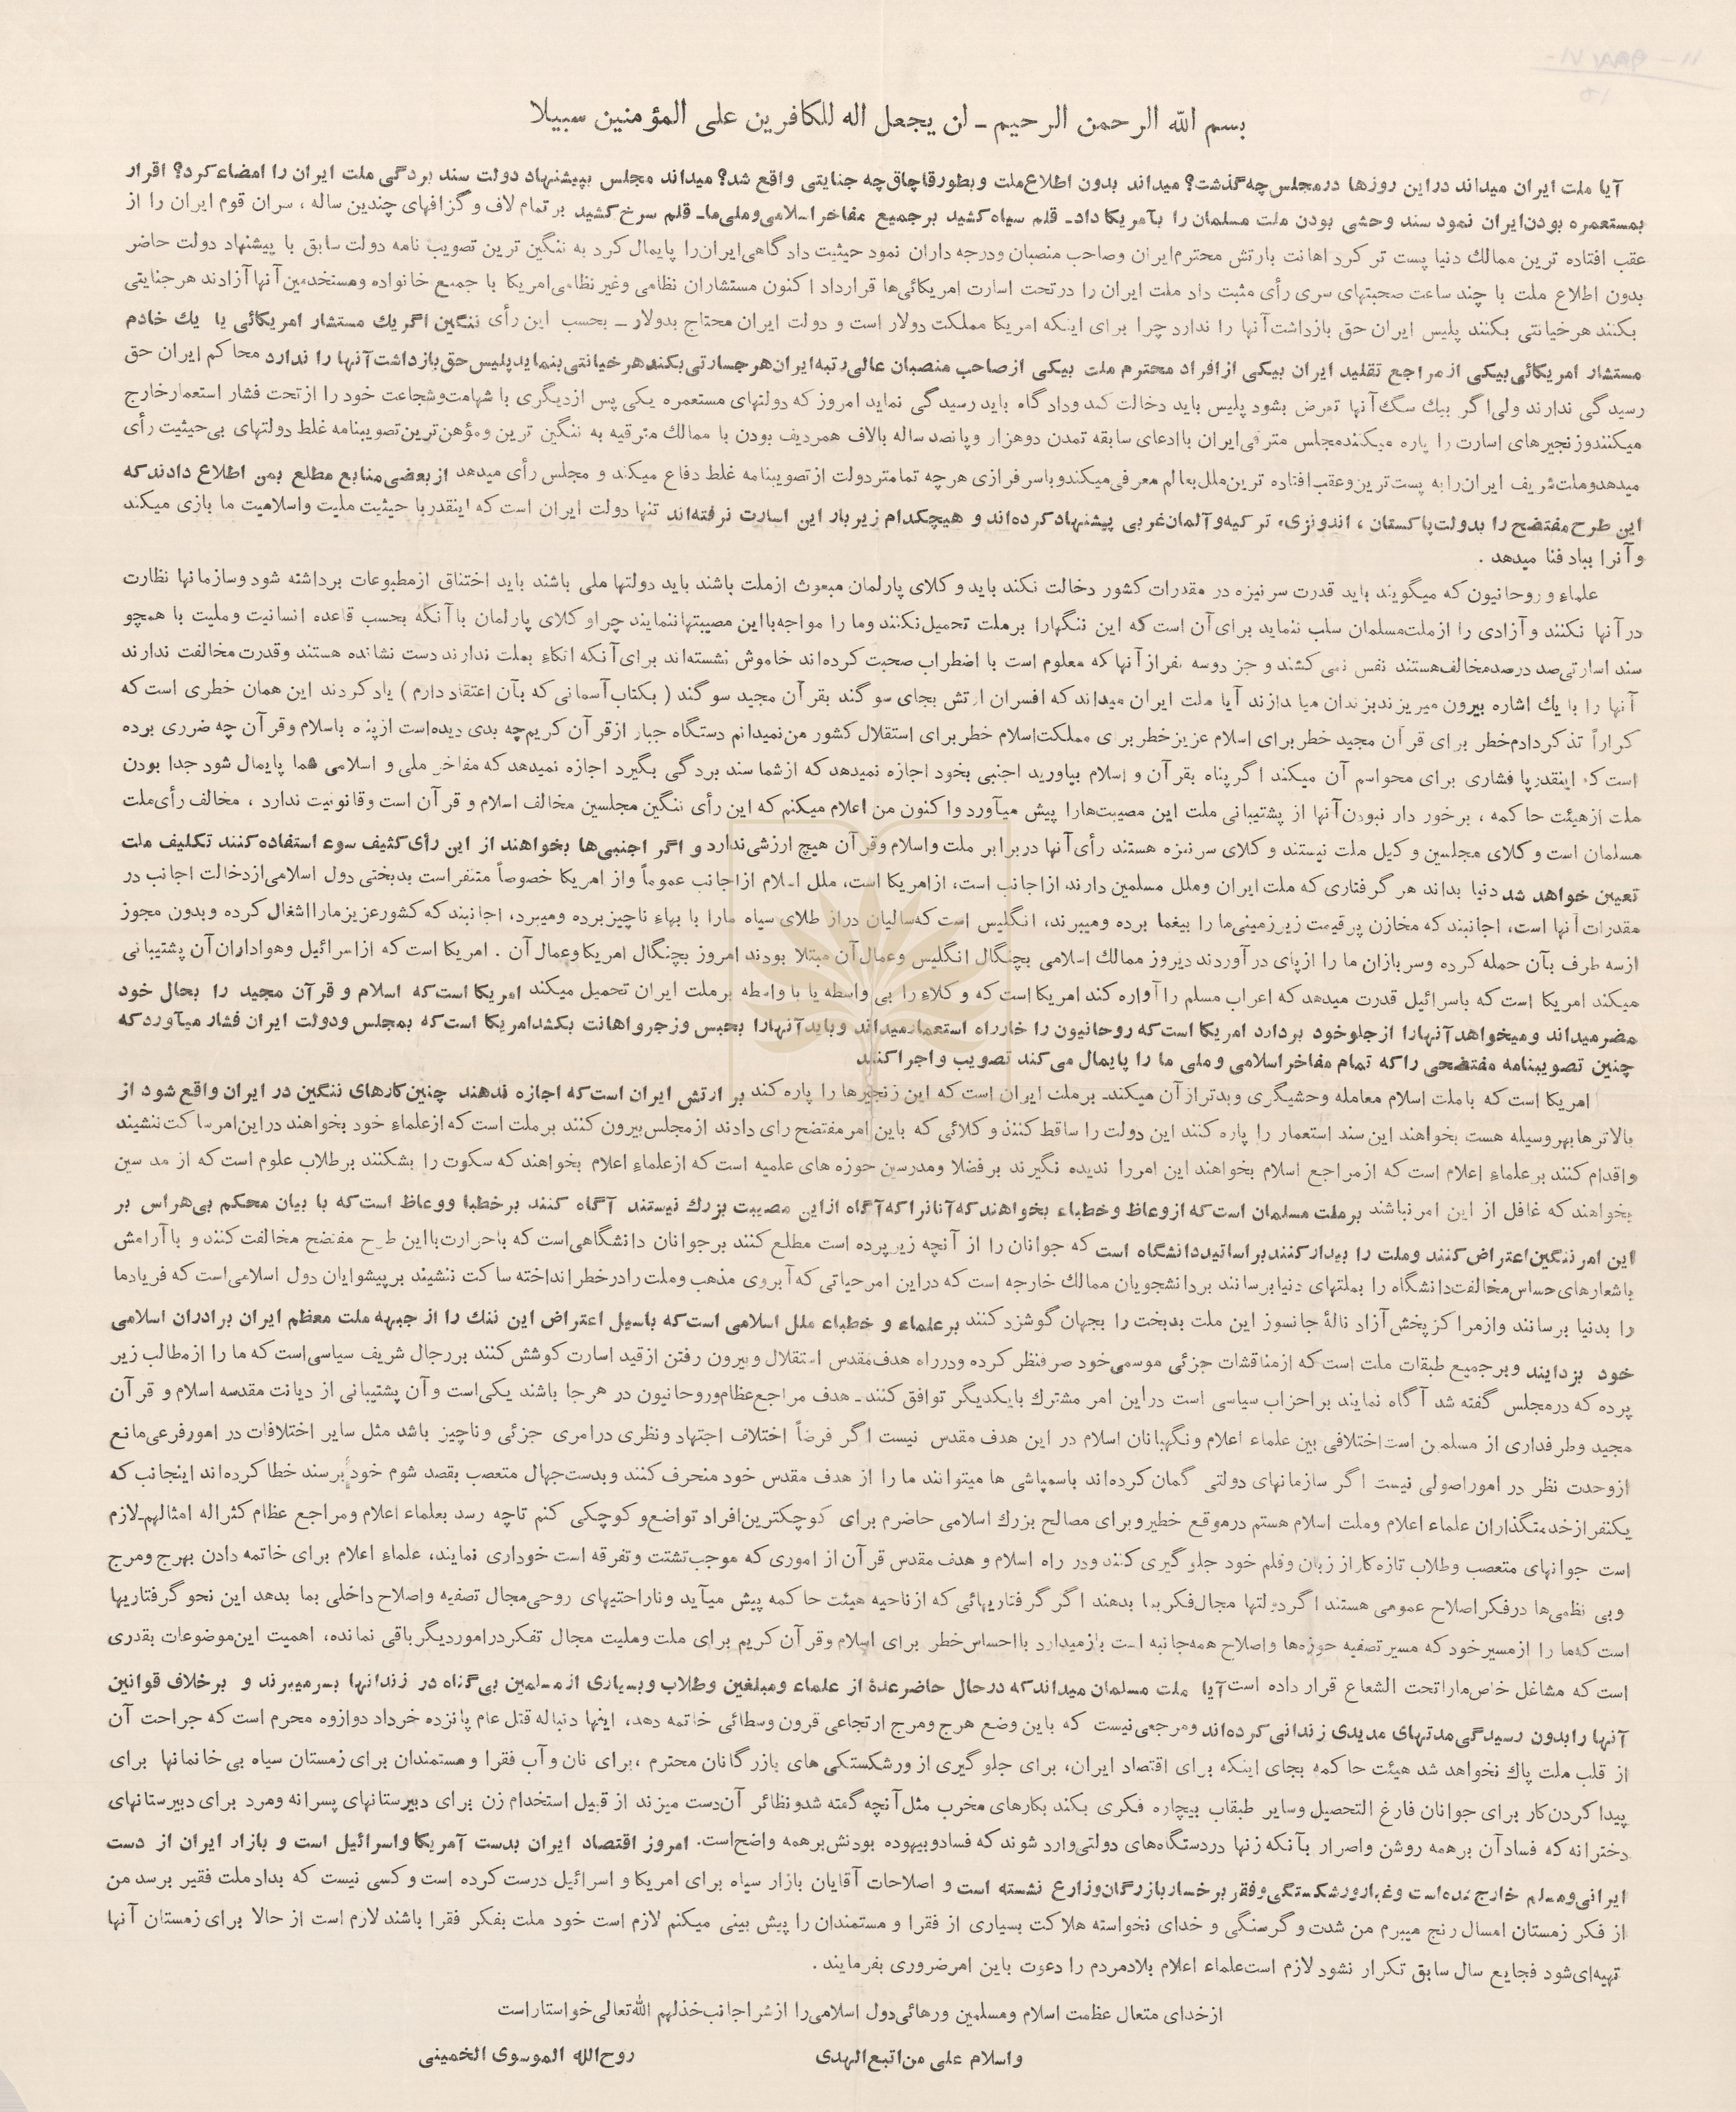 بسم الله الرحمن الرحیم ـ لن یجعل اله للکافرین علی المؤمنین سبیلا
آیا ملت ایران میداند دراین روزها درمجلس چه گذشت؟ میداند بدون اطلاع ملت وبطورقاچاق چه جنایتی واقع شد؟ میداند مجلس بپیشنهاد دولت سند بردگی ملت ایران را امضاء کرد؟ اقرار
بمستعمره بودن ایران نمود سند وحشی بودن ملت مسلمان را بآمریکا داد ـ قلم سیاه کشید برجمیع مفاخر اسلامی وملی ما ـ قلم سرخ کشید برتمام لاف و گزافهای چندین ساله ، سران قوم ایران را از
عقب افتاده ترین ممالك دنیا پست تر کرد اهانت بارتش محترم ایران وصاحب منصبان ودرجه داران نمود حیثیت دادگاهی ایران را پایمال کرد به ننگین ترین تصویب نامه دولت سابق با پیشنهاد دولت حاضر
بدون اطلاع ملت با چند ساعت صحبتهای سری رأی مثبت داد ملت ایران را درتحت اسارت امریکائی‌ها قرارداد اکنون مستشاران نظامی وغیر نظامی امریکا با جمیع خانواده ومستخدمین آنها آزادند هر جنایتی
بکنند هرخیانتی بکنند پلیس ایران حق بازداشت آنها را ندارد چرا برای اینکه امریکا مملکت دولار است و دولت ایران محتاج بدولار ــ بحسب این رأی ننگین اگریك مستشار امریکائی یا یك خادم
مستشار امریکائی بیکی از مراجع تقلید ایران بیکی ازافراد محترم ملت بیکی ازصاحب منصبان عالی رتبه ایران هرجسارتی بکند هرخیانتی بنماید پلیس حق بازداشت آنها را ندارد محاکم ایران حق
رسیدگی ندارند ولی اگر بیك سگ آنها تعرض بشود پلیس باید دخالت کند ودادگاه باید رسیدگی نماید امروز که دولتهای مستعمره یکی پس ازدیگری با شهامت وشجاعت خود را ازتحت فشار استعمار خارج
میکنند وزنجیرهای اسارت را پاره میکنند مجلس مترقی ایران باادعای سابقه تمدن دوهزار وپانصد ساله بالاف همردیف بودن با ممالك مترقیه به ننگین ترین ومؤهن ترین تصویبنامه غلط دولتهای بی حیثیت رأی
میدهد وملت شریف ایران رابه پست ترین وعقب افتاده ترین ملل بعالم معرفی میکند وباسرفرازی هرچه تمامتر دولت ازتصویبنامه غلط دفاع میکند و مجلس رأی میدهد از بعضی منابع مطلع بمن اطلاع دادند که
این طرح مفتضح را بدولت پاکستان ، اندونزی، ترکیه وآلمان غربی پیشنهاد کرده‌اند و هیچکدام زیربار این اسارت نرفته‌اند تنها دولت ایران است که اینقدربا حیثیت ملیت واسلامیت ما بازی میکند
وآنرا بباد فنا میدهد .
علماء و روحانیون که میگویند باید قدرت سرنیزه در مقدرات کشور دخالت نکند باید وکلای پارلمان مبعوث ازملت باشند باید دولتها ملی باشند باید اختناق ازمطبوعات برداشته شود وسازمانها نظارت
درآنها نکنند وآزادی را ازملت مسلمان سلب ننماید برای آن است که این ننگهارا برملت تحمیل نکنند وما را مواجه بااین مصیبتهاننمایند چرا وکلای پارلمان باآنکه بحسب قاعده انسانیت وملیت با همچو
سند اسارتی صد درصد مخالف هستند نفس نمی کشند و جز دوسه نفرازآنها که معلوم است با اضطراب صحبت کرده‌اند خاموش نشسته‌اند برای آنکه اتکاء بملت ندارند دست نشانده هستند وقدرت مخالفت ندارند
آنها را با یك اشاره بیرون میریزند بزندان میاندازند آیا ملت ایران میداند که افسران ارتش بجای سوگند بقرآن مجید سوگند ( بکتاب آسمانی که بآن اعتقاد دارم ) یاد کردند این همان خطری است که
کراراً تذکردادم خطر برای قرآن مجید خطر برای اسلام عزیز خطر برای مملکت اسلام خطر برای استقلال کشور من نمیدانم دستگاه جبار ازقرآن کریم چه بدی دیده‌است ازپناه باسلام وقرآن چه ضرری برده
است که اینقدرپا فشاری برای محواسم آن میکند اگر پناه بقرآن و اسلام بیاورید اجنبی بخود اجازه نمیدهد که ازشما سند بردگی بگیرد اجازه نمیدهد که مفاخر ملی و اسلامی شما پایمال شود جدا بودن
ملت ازهیئت حاکمه ، برخوردار نبودن آنها از پشتیبانی ملت این مصیبت‌هارا پیش میآورد واکنون من اعلام میکنم که این رأی ننگین مجلسین مخالف اسلام و قرآن است وقانونیت ندارد ، مخالف رأی ملت
مسلمان است وکلای مجلسین وکیل ملت نیستند وکلای سرنیزه هستند رأی آنها دربرابر ملت واسلام وقرآن هیچ ارزشی ندارد و اگر اجنبی‌ها بخواهند از این رأی کثیف سوء استفاده کنند تکلیف ملت
تعیین خواهد شد دنیا بداند هر گرفتاری که ملت ایران وملل مسلمین دارند ازاجانب است، ازامریکا است، ملل اسلام ازاجانب عموماً واز امریکا خصوصاً متنفر است بدبختی دول اسلامی ازدخالت اجانب در
مقدرات آنها است، اجانبند که مخازن پرقیمت زیرزمینی ما را بیغما برده ومیبرند، انگلیس است که سالیان دراز طلای سیاه مارا با بهاء ناچیز برده ومیبرد، اجانبند که کشور عزیز مارا اشغال کرده وبدون مجوز
ازسه طرف بآن حمله کرده وسربازان ما را ازپای درآوردند دیروز ممالك اسلامی بچنگال انگلیس وعمال آن مبتلا بودند امروز بچنگال امریکا وعمال آن . امریکا است که ازاسرائیل وهواداران آن پشتیبانی
میکند امریکا است که باسرائیل قدرت میدهد که اعراب مسلم را آواره کند امریکا است که وکلاء را بی واسطه یا با واسطه برملت ایران تحمیل میکند امریکا است که اسلام و قرآن مجید را بحال خود
مضر میداند و میخواهد آنهارا ازجلوخود بردارد امریکا است که روحانیون را خارراه استعمار میداند وباید آنهارا بحبس وزجر واهانت بکشد امریکا است که بمجلس ودولت ایران فشار میآورد که
چنین تصویبنامه مفتضحی را که تمام مفاخر اسلامی وملی ما را پایمال می کند تصویب واجرا کنند
امریکا است که باملت اسلام معامله وحشیگری وبدترازآن میکند ـ برملت ایران است که این زنجیرها را پاره کند بر ارتش ایران است که اجازه ندهند چنین کارهای ننگین در ایران واقع شود از
بالاترها بهروسیله هست بخواهند این سند استعمار را پاره کنند این دولت را ساقط کنند وکلائی که باین امر مفتضح رای دادند ازمجلس بیرون کنند برملت است که ازعلماء خود بخواهند دراین امر ساکت ننشینند
واقدام کنند برعلماء اعلام است که ازمراجع اسلام بخواهند این امررا ندیده نگیرند برفضلا ومدرسین حوزه های علمیه است که ازعلماء اعلام بخواهند که سکوت را بشکنند برطلاب علوم است که از مدرسین
بخواهند که غافل از این امر نباشند برملت مسلمان است که ازوعاظ وخطباء بخواهند که آنانرا که آگاه ازاین مصیبت بزرك نیستند آگاه کنند برخطبا ووعاظ است که با بیان محکم بی هراس بر
این امر ننگین اعتراض کنند وملت را بیدار کنند براساتید دانشگاه است که جوانان را از آنچه زیرپرده است مطلع کنند برجوانان دانشگاهی است که باحرارت بااین طرح مفتضح مخالفت کنند و باآرامش
باشعارهای حساس مخالفت دانشگاه را بملتهای دنیا برسانند بردانشجویان ممالك خارجه است که دراین امر حیاتی که آبروی مذهب وملت را درخطر انداخته ساکت ننشیند برپیشوایان دول اسلامی است که فریاد ما
را بدنیا برسانند وازمراکز پخش آزاد نالهٔ جانسوز این ملت بدبخت را بجهان گوشزد کنند برعلماء و خطباء ملل اسلامی است که باسیل اعتراض این ننك را از جبهه ملت معظم ایران برادران اسلامی
خود بزدایند وبرجمیع طبقات ملت است که ازمناقشات جزئی موسمی خود صرفنظر کرده ودرراه هدف مقدس استقلال وبیرون رفتن ازقید اسارت کوشش کنند بررجال شریف سیاسی است که ما را ازمطالب زیر
پرده که درمجلس گفته شد آگاه نمایند براحزاب سیاسی است دراین امر مشترك بایکدیگر توافق کنند ـ هدف مراجع عظام وروحانیون در هرجا باشند یکی است وآن پشتیبانی از دیانت مقدسه اسلام و قرآن
مجید وطرفداری از مسلمین است اختلافی بین علماء اعلام ونگهبانان اسلام در این هدف مقدس نیست اگر فرضاً اختلاف اجتهاد ونظری درامری جزئی وناچیز باشد مثل سایر اختلافات در امور فرعی مانع
ازوحدت نظر در اموراصولی نیست اگر سازمانهای دولتی گمان کرده‌اند باسمپاشی ها میتوانند ما را از هدف مقدس خود منحرف کنند وبدست جهال متعصب بقصد شوم خود برسند خطا کرده‌اند اینجانب که
یکنفرازخدمتگذاران علماء اعلام وملت اسلام هستم درموقع خطیر وبرای مصالح بزرك اسلامی حاضرم برای کوچکترین افراد تواضع و کوچکی کنم تاچه رسد بعلماء اعلام ومراجع عظام کثراله امثالهم ـ لازم
است جوانهای متعصب وطلاب تازه کار از زبان وقلم خود جلوگیری کنند ودر راه اسلام و هدف مقدس قرآن از اموری که موجب تشتت وتفرقه است خوداری نمایند، علماء اعلام برای خاتمه دادن بهرج ومرج
وبی نظمی‌ها درفکراصلاح عمومی هستند اگر دولتها مجال فکر بما بدهند اگر گرفتاریهائی که ازناحیه هیئت حاکمه پیش میآید وناراحتیهای روحی مجال تصفیه واصلاح داخلی بما بدهد این نحو گرفتاریها
است که ما را ازمسیر خود که مسیر تصفیه حوزه‌ها واصلاح همه جانبه است بازمیدارد بااحساس خطر برای اسلام وقرآن کریم برای ملت وملیت مجال تفکر درامور دیگر باقی نمانده، اهمیت این موضوعات بقدری
است که مشاغل خاص ماراتحت الشعاع قرار داده است آیا ملت مسلمان میداند که درحال حاضر عدهٔ از علماء ومبلغین وطلاب وبسیاری ازمسلمین بی گناه در زندانها بسرمیبرند و برخلاف قوانین
آنها را بدون رسیدگی مدتهای مدیدی زندانی کرده‌اند ومرجعی نیست که باین وضع هرج ومرج ارتجاعی قرون وسطائی خاتمه دهد، اینها دنباله قتل عام پانزده خرداد دوازوه محرم است که جراحت آن
از قلب ملت پاك نخواهد شد هیئت حاکمه بجای اینکه برای اقتصاد ایران، برای جلوگیری از ورشکستکی های بازرگانان محترم ،برای نان وآب فقرا ومستمندان برای زمستان سیاه بی خانمانها برای
پیدا کردن کار برای جوانان فارغ التحصیل وسایر طبقاب بیچاره فکری بکند بکارهای مخرب مثل آنچه گفته شد ونظائر آن دست میزند از قبیل استخدام زن برای دبیرستانهای پسرانه ومرد برای دبیرستانهای
دخترانه که فساد آن برهمه روشن واصرار بآنکه زنها دردستگاه‌های دولتی وارد شوند که فساد وبیهوده بودنش برهمه واضح است. امروز اقتصاد ایران بدست آمریکا واسرائیل است و بازار ایران از دست
ایرانی ومسلم خارج شده است وغبار ورشکستگی وفقر برخسار بازرگان وزارع نشسته است و اصلاحات آقایان بازار سیاه برای امریکا و اسرائیل درست کرده است و کسی نیست که بداد ملت فقیر برسد من
از فکر زمستان امسال رنج میبرم من شدت وگرسنگی و خدای نخواسته هلاکت بسیاری از فقرا و مستمندان را پیش بینی میکنم لازم است خود ملت بفکر فقرا باشند لازم است از حالا برای زمستان آنها
تهیه‌ای شود فجایع سال سابق تکرار نشود لازم است علماء اعلام بلاد مردم را دعوت باین امر ضروری بفرمایند .
ازخدای متعال عظمت اسلام ومسلمین ورهائی دول اسلامی را ازشراجانب خذلهم الله تعالی خواستار است
واسلام علی من اتبع الهدی روح الله الموسوی الخمینی